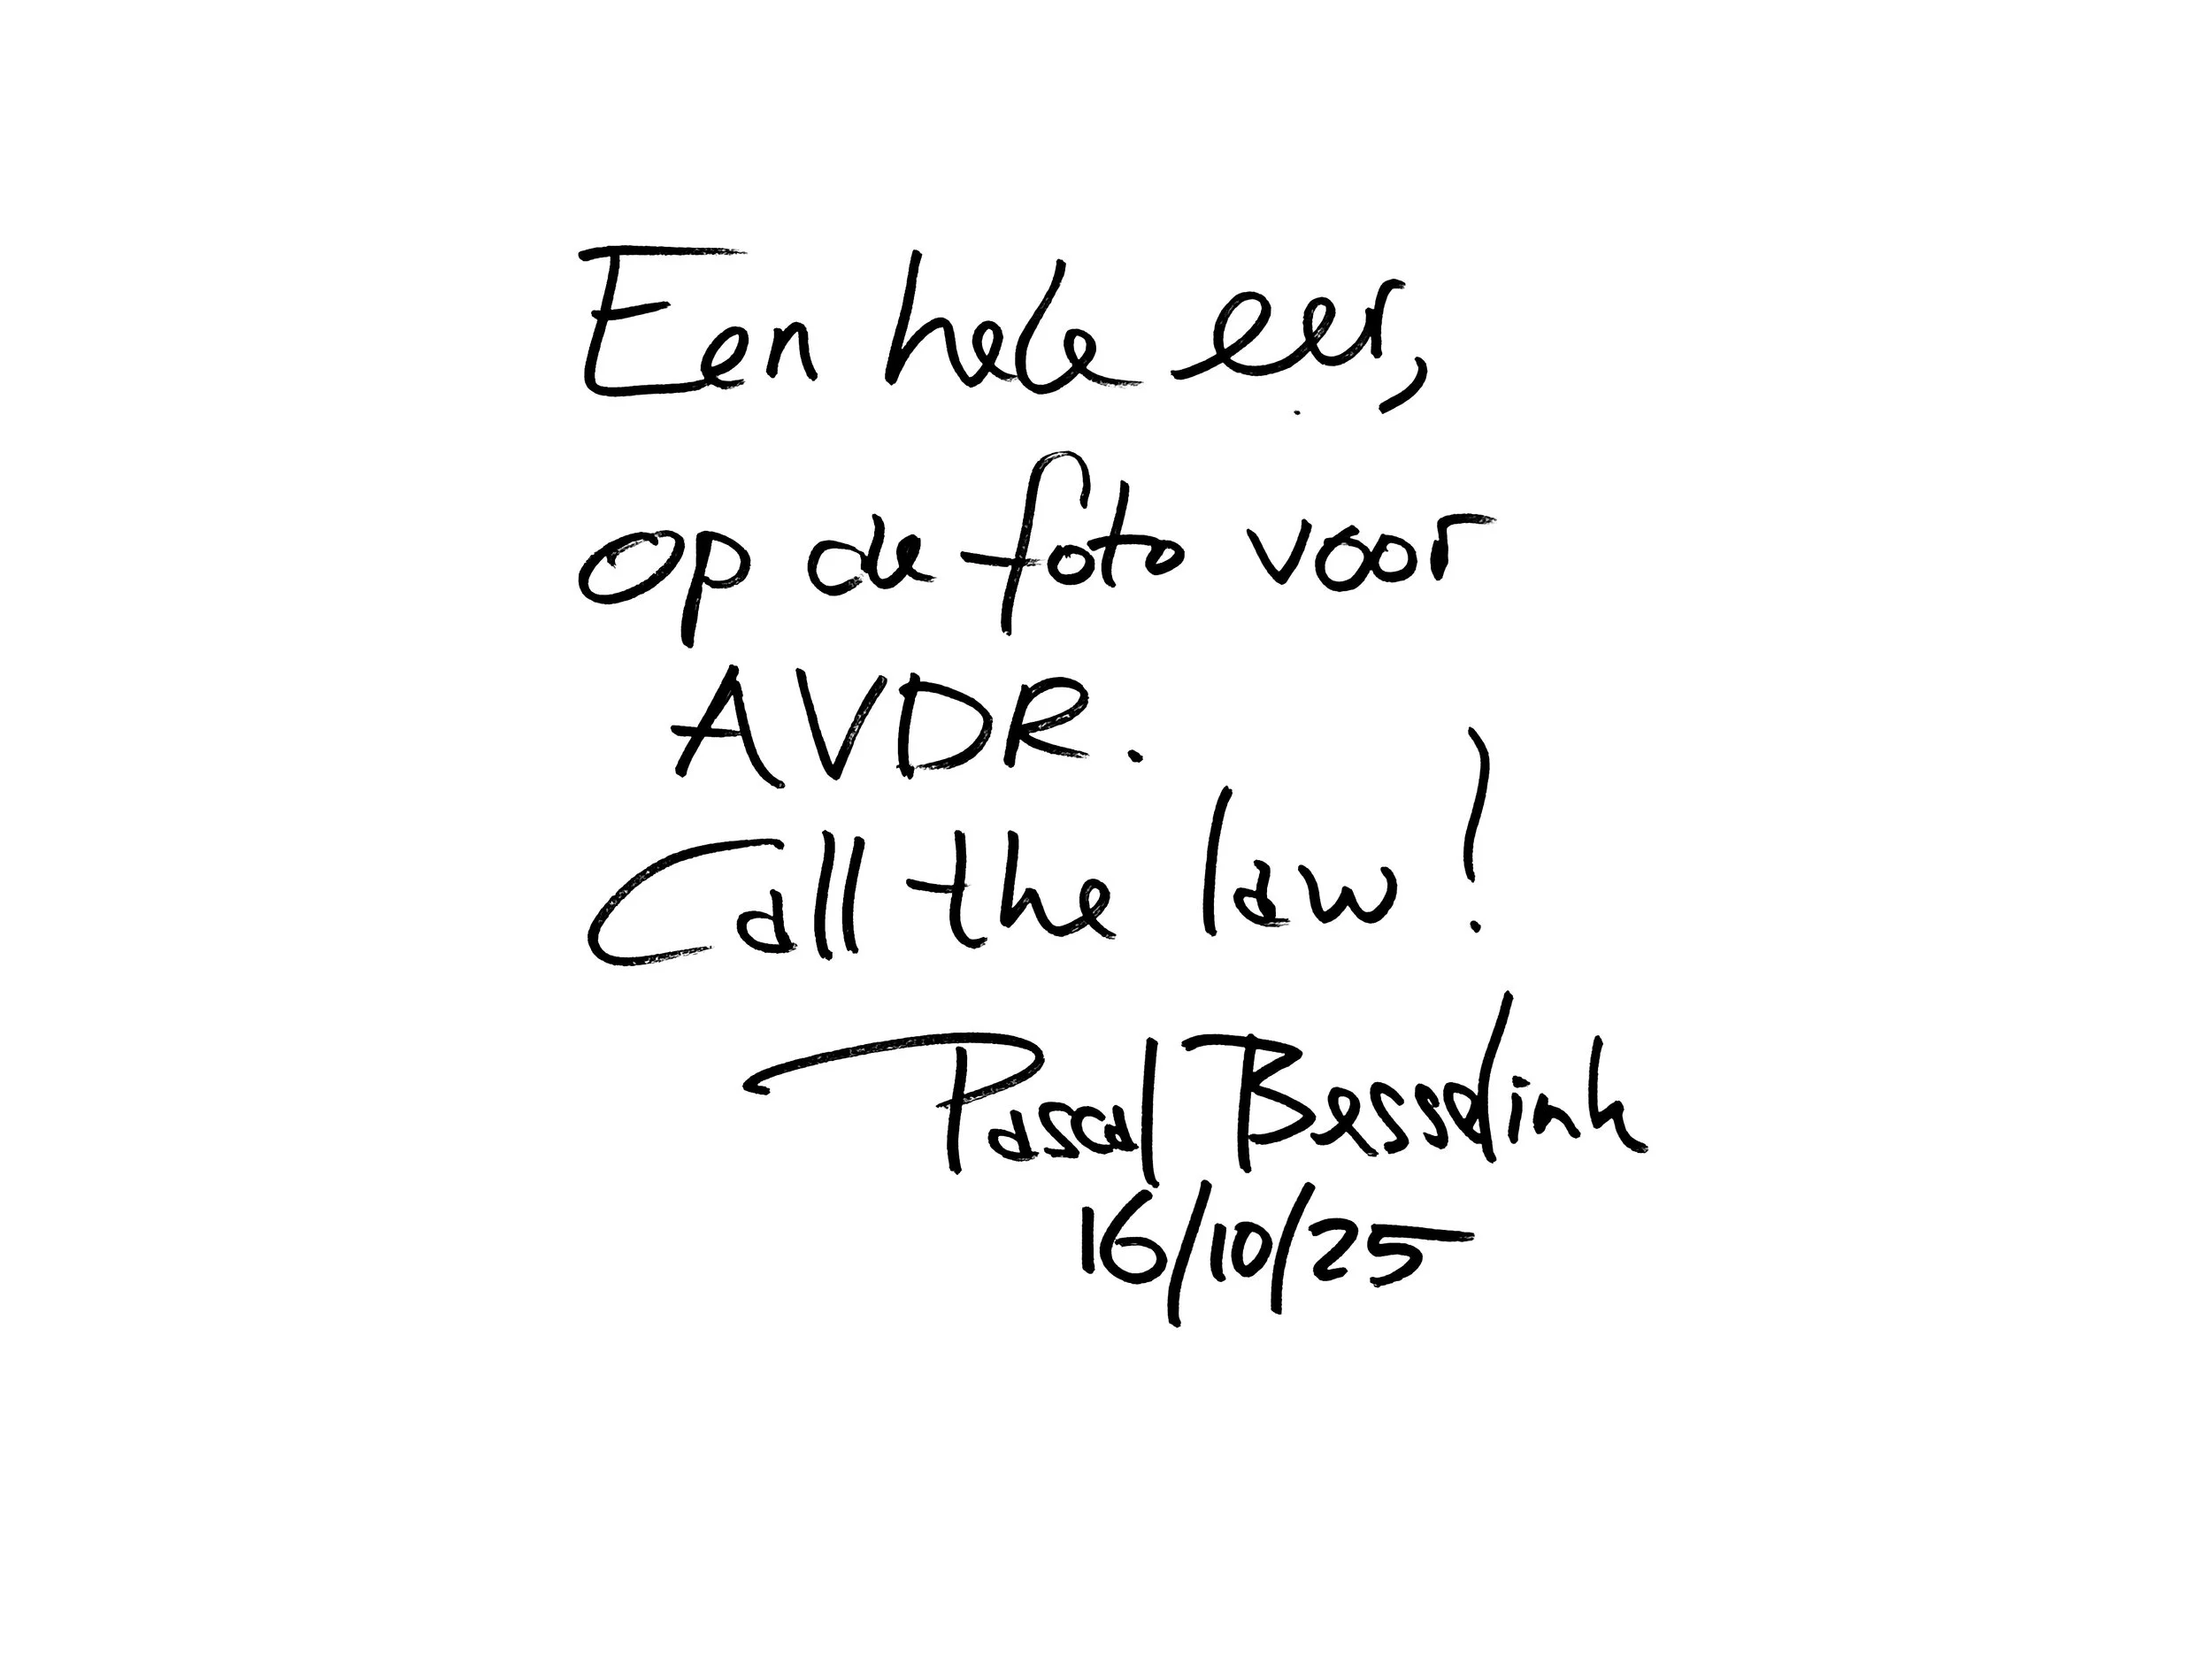 Een hele eer,
op de foto voor
AVDR.
Call the law!
Pascal Besselink
16/10/25